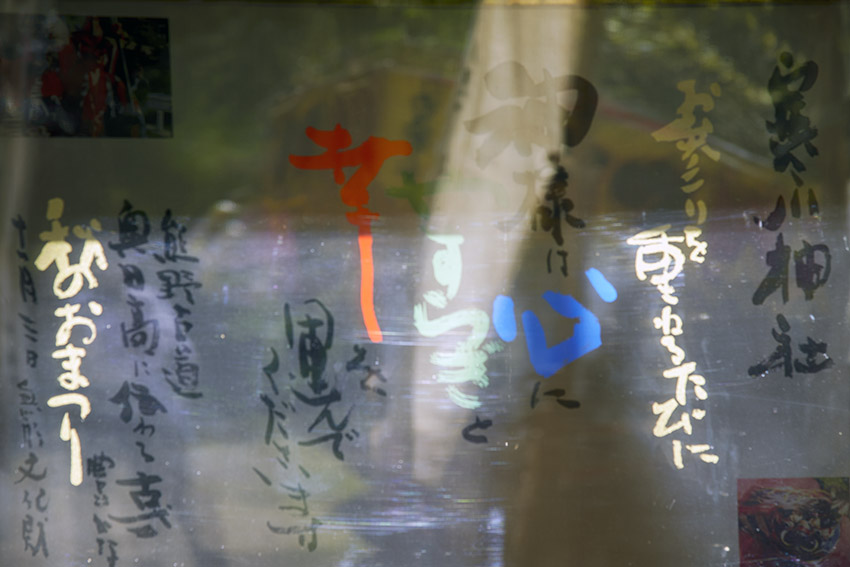 寒川神社
お祭りを
重ねるたびに
神様は
心に
やすらぎと
幸を
運んで
くださいます
熊野古道
奥日高に伝わる
秋のおまつり
十一月三日 無形文化財